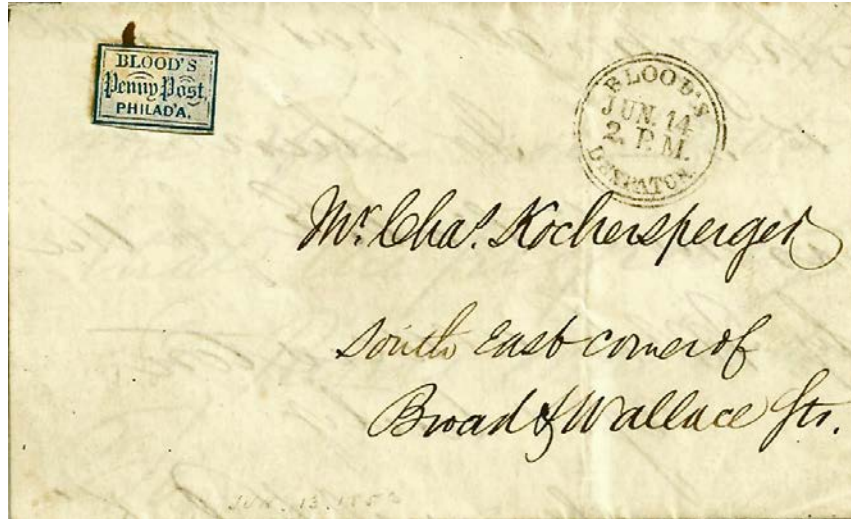 BLOOD'S
Penny Post,
PHILAD'A.
BLOOD'S
JUN. 14
2 P.M.
DESPATCH.
Mr. Chas. Kochersperger
South East corner of
Broad & Wallace Sts.
JUN. 13. 185